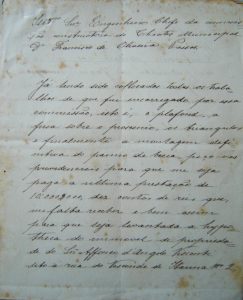 Snr. Engenheiro Chefe da commissão
constructora do Theatro Municipal
Dr Francisco de Oliveira Passos
Já tendo sido collocados todos os traba
lhos de que fui incarregado por essa
commissão, isto é, o plafond, a
frisa sobre o proscenio, os triangulos
e finalmente a montagem defi
nitiva do panno de bocca, peço vos
providenciais para que me seja
paga a ultima prestação de
10:000$000, dez contos de reis que
me falta receber e bem assim
para que seja levantada a hypo
theca do immovel de proprieda
de do Sr Affonso d'Angelo Visconti
sito á rua do Visconde de Itauna Nº